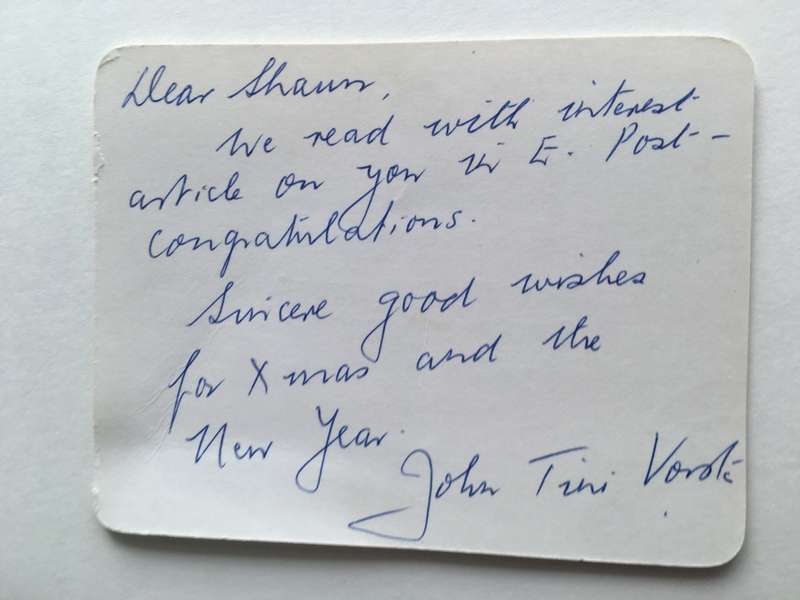 Dear Shaun,
We read with interest
article on you in E. Post -
congratulations.
Sincere good wishes
for Xmas and the
New Year.
John Tini Vorster